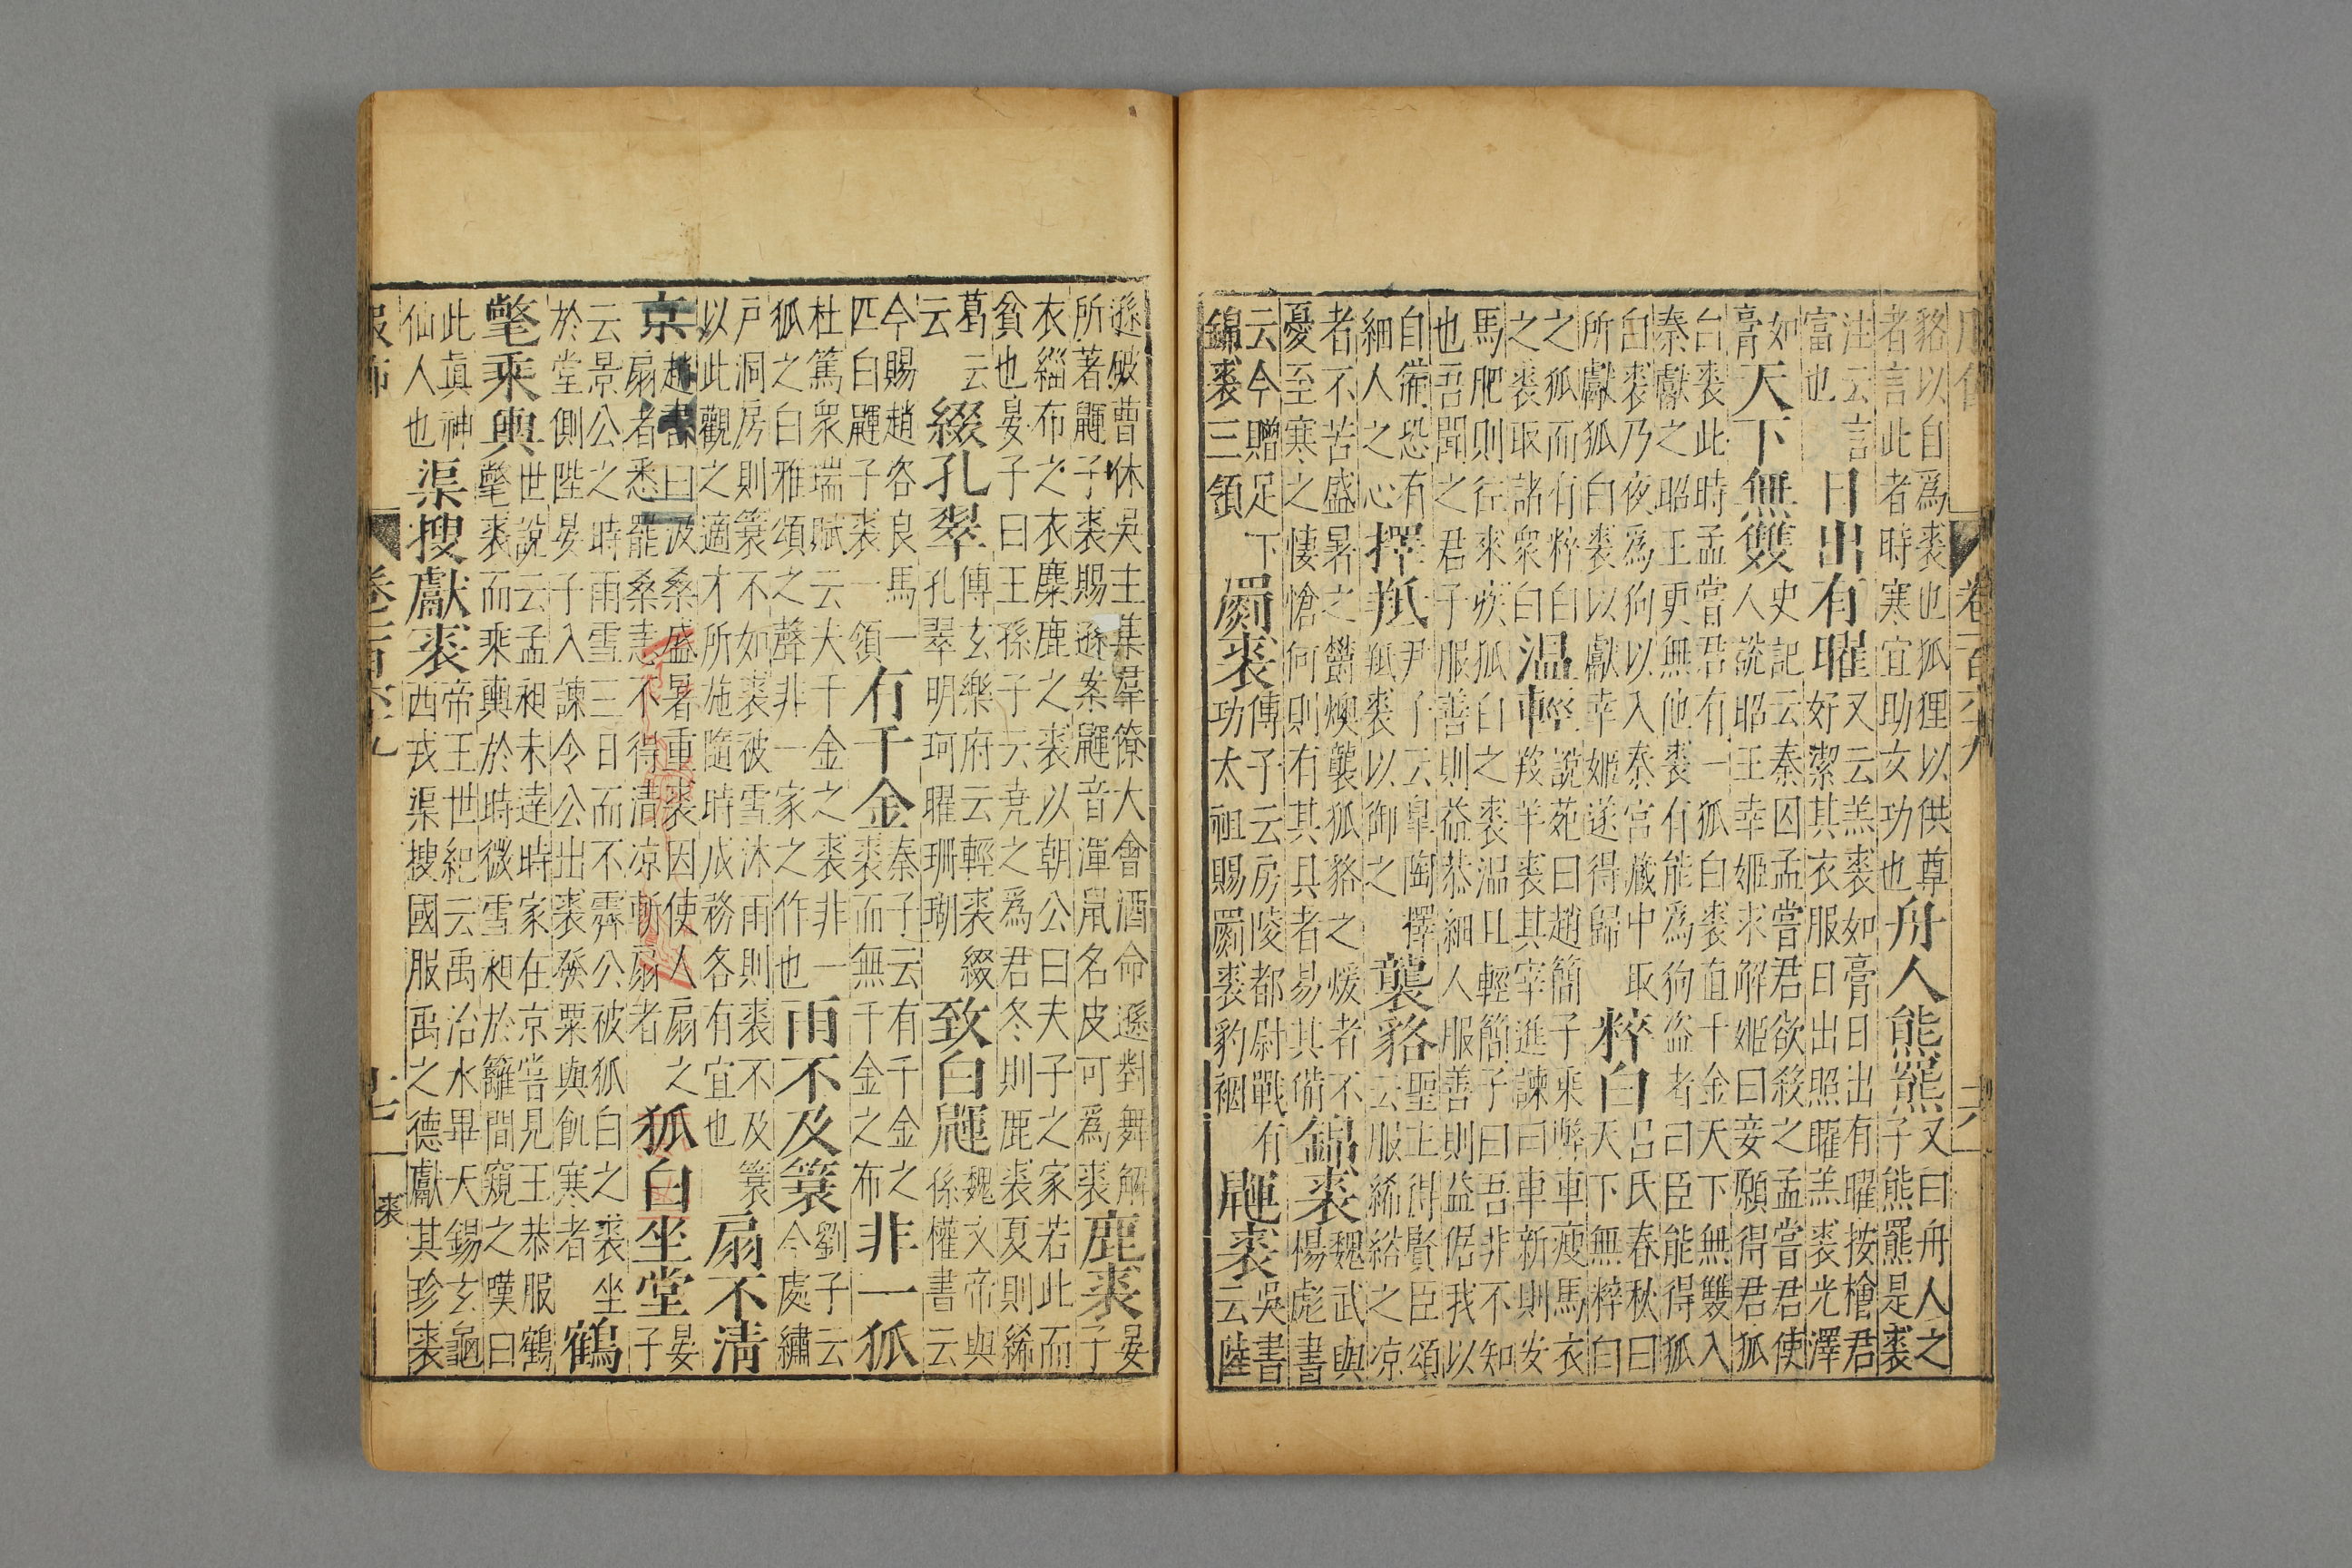 服飾 卷一百二十九 十六
貉以自爲裘也狐狸以供尊
者言此者時寒宜助女功也
舟人熊羆
又曰舟人之
子熊羆是裘
注云言
富也
日出有曜
又云羔裘如膏日出有曜按檜君
好潔其衣服日出照曜羔裘光澤
如
膏
天下無雙
史記云秦囚孟嘗君欲殺之孟嘗君使
人說昭王幸姬求解姬曰妾願得君狐
白裘此時孟嘗君有一狐白裘直千金天下無雙入
秦獻之昭王更無他裘有能爲狗盜者曰臣能得狐
白裘乃夜爲狗以入秦宮藏中取
所獻狐白裘以獻幸姬遂得歸
粹白
呂氏春秋曰
天下無粹白
之狐而有粹白
之裘取諸衆白
溫輕
說苑曰趙簡子乘弊車瘦馬衣
羖羊裘其宰進諫曰車新則安
馬肥則往來疾狐白之裘溫且輕簡子曰吾非不知
也吾聞之君子服善則益恭細人服善則益倨我以
自備恐有
細人之心
擇羝
尹子云皐陶擇
羝裘以御之
襲貉
聖主得賢臣頌
云服絺綌之凉
者不苦盛暑之鬱燠襲狐貉之煖者不
憂至寒之悽愴何則有其具者易其備
錦裘
魏武與
楊彪書
云今贈足下
錦裘三領
罽裘
傅子云房陵都尉戰有
功太祖賜罽裘豹裀
鼲裘
吳書
云陸
遜破曹休吳主集羣僚大會酒命遜對舞解
所著鼲子裘賜遜案鼲音渾鼠名皮可爲裘
鹿裘
晏
子
衣緇布之衣麋鹿之裘以朝公曰夫子之家若此而
貧也晏子曰王孫子云堯之爲君冬則鹿裘夏則絺
葛云
云
綴孔翠
傅玄樂府云輕裘綴
孔翠明珂曜珊瑚
致白鼲
魏文帝與
孫權書云
今賜趙咨良馬一
匹白鼲子裘一領
有千金
秦子云有千金之
裘而無千金之布
非一狐
杜篤衆瑞賦云大千金之裘非一
狐之白雅頌之聲非一家之作也
雨不及簑
劉子云
今處繡
戶洞房則簑不如裘被雪沐雨則裘不及簑
以此觀之適才所施隨時成務各有宜也
扇不淸
京
趙書曰汲桑盛暑重裘因使人扇之
扇者悉罷桑恚不得清凉斬扇者
狐白坐堂
晏
子
云景公之時雨雪三日而不霽公被狐白之裘坐
於堂側陛晏子入諫令公出裘發粟與飢寒者
鶴
氅乘輿
世說云孟昶未達時家在京嘗見王恭服鶴
氅裘而乘輿於時微雪昶於籬間窺之嘆曰
此眞神
仙人也
渠搜獻裘
帝王世紀云禹治水畢天錫玄龜
西戎渠搜國服禹之德獻其珍裘
服飾 卷一百二十九 十七 裘